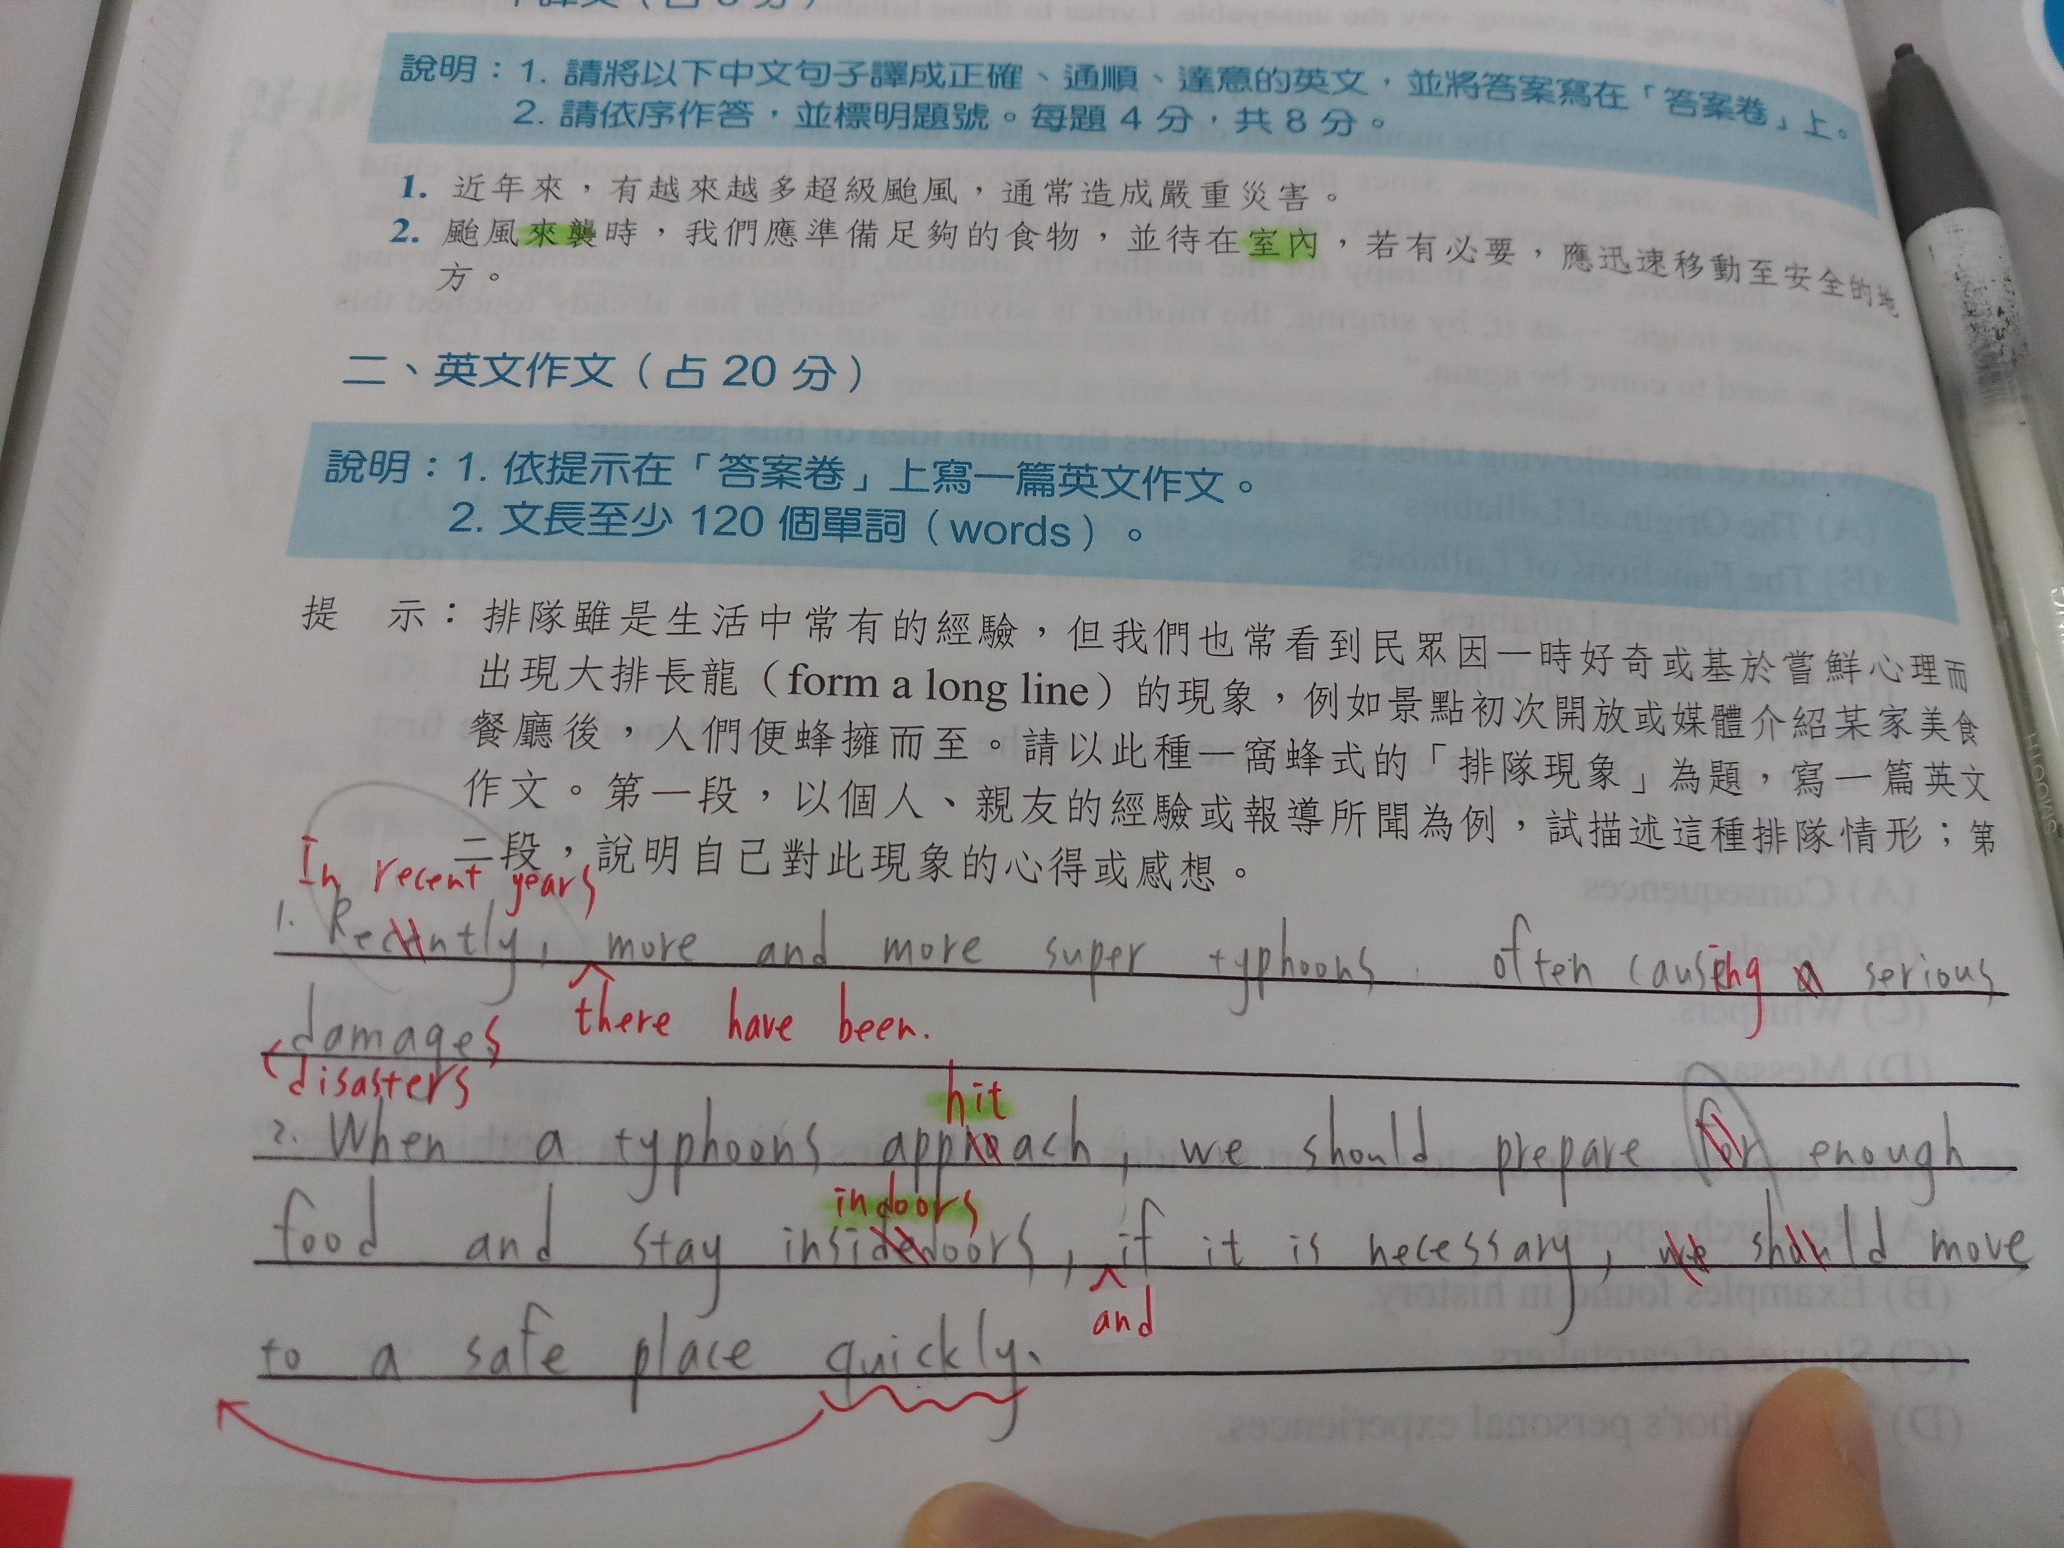 說明：1. 請將以下中文句子譯成正確、通順、達意的英文，並將答案寫在「答案卷」上。
2. 請依序作答，並標明題號。每題 4 分，共 8 分。
1. 近年來，有越來越多超級颱風，通常造成嚴重災害。
2. 颱風來襲時，我們應準備足夠的食物，並待在室內，若有必要，應迅速移動至安全的地
方。
二、英文作文（占 20 分）
說明：1. 依提示在「答案卷」上寫一篇英文作文。
2. 文長至少 120 個單詞（words）。
提　示：排隊雖是生活中常有的經驗，但我們也常看到民眾因一時好奇或基於嘗鮮心理而
出現大排長龍（form a long line）的現象，例如景點初次開放或媒體介紹某家美食
餐廳後，人們便蜂擁而至。請以此種一窩蜂式的「排隊現象」為題，寫一篇英文
作文。第一段，以個人、親友的經驗或報導所聞為例，試描述這種排隊情形；第
二段，說明自己對此現象的心得或感想。
In recent years
1. Recently, more and more super typhoons often causing a serious
there have been.
damages
disasters
hit
2. When a typhoons approach, we should prepare for enough
indoors
food and stay insidedoors, if it is necessary, we should move
and
to a safe place quickly.